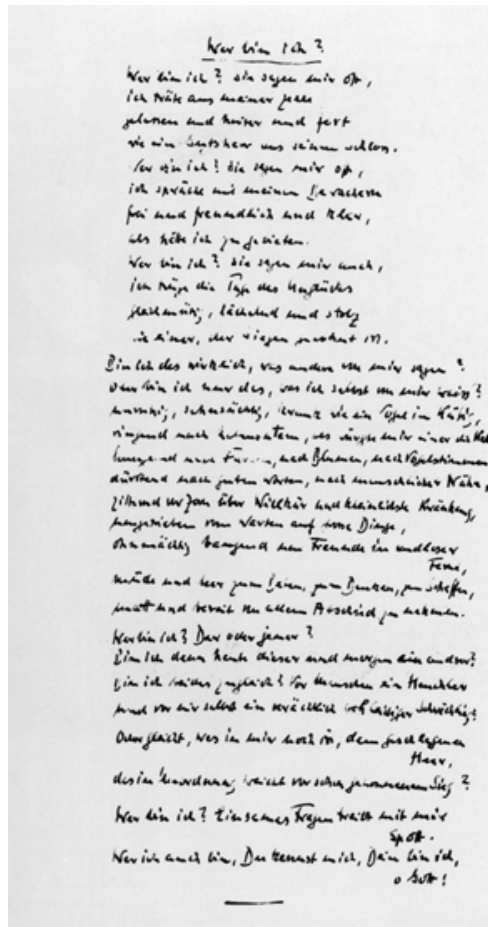 Wer bin ich?
Wer bin ich? Sie sagen mir oft,
ich träte aus meiner Zelle
gelassen und heiter und fest
wie ein Gutsherr aus seinem Schloss.
Wer bin ich? Sie sagen mir oft,
ich spräche mit meinen Bewachern
frei und freundlich und klar,
als hätte ich zu gebieten.
Wer bin ich? Sie sagen mir auch,
ich trüge die Tage des Unglücks
gleichmütig, lächelnd und stolz
wie einer, der siegen gewohnt ist.
Bin ich das wirklich, was andere von mir sagen?
Oder bin ich nur das, was ich selbst von mir weiss?
unruhig, sehnsüchtig, krank, wie ein Vogel im Käfig,
ringend nach Lebensatem, als würgte mir einer die Kehle
hungernd nach Farben, nach Blumen, nach Vogelstimmen
dürstend nach guten Worten, nach menschlicher Nähe,
zitternd vor Zorn über Willkür und kleinlichste Kränkung,
umgetrieben vom Warten auf grosse Dinge,
ohnmächtig bangend um Freunde in endloser
Ferne,
müde und leer zum Beten, zum Denken, zum Schaffen,
matt und bereit von allem Abschied zu nehmen.
Wer bin ich? Der oder jener?
Bin ich denn heute dieser und morgen ein andrer?
Bin ich beides zugleich? Vor Menschen ein Heuchler
und vor mir selbst ein verächtlich wehleidiger Schwächling?
Oder gleicht, was in mir noch ist, dem geschlagenen
Heer,
das in Unordnung weicht vor schon gewonnenem Sieg?
Wer bin ich? Einsames Fragen treibt mit mir
Spott.
Wer ich auch bin, Du kennst mich, Dein bin ich,
o Gott!